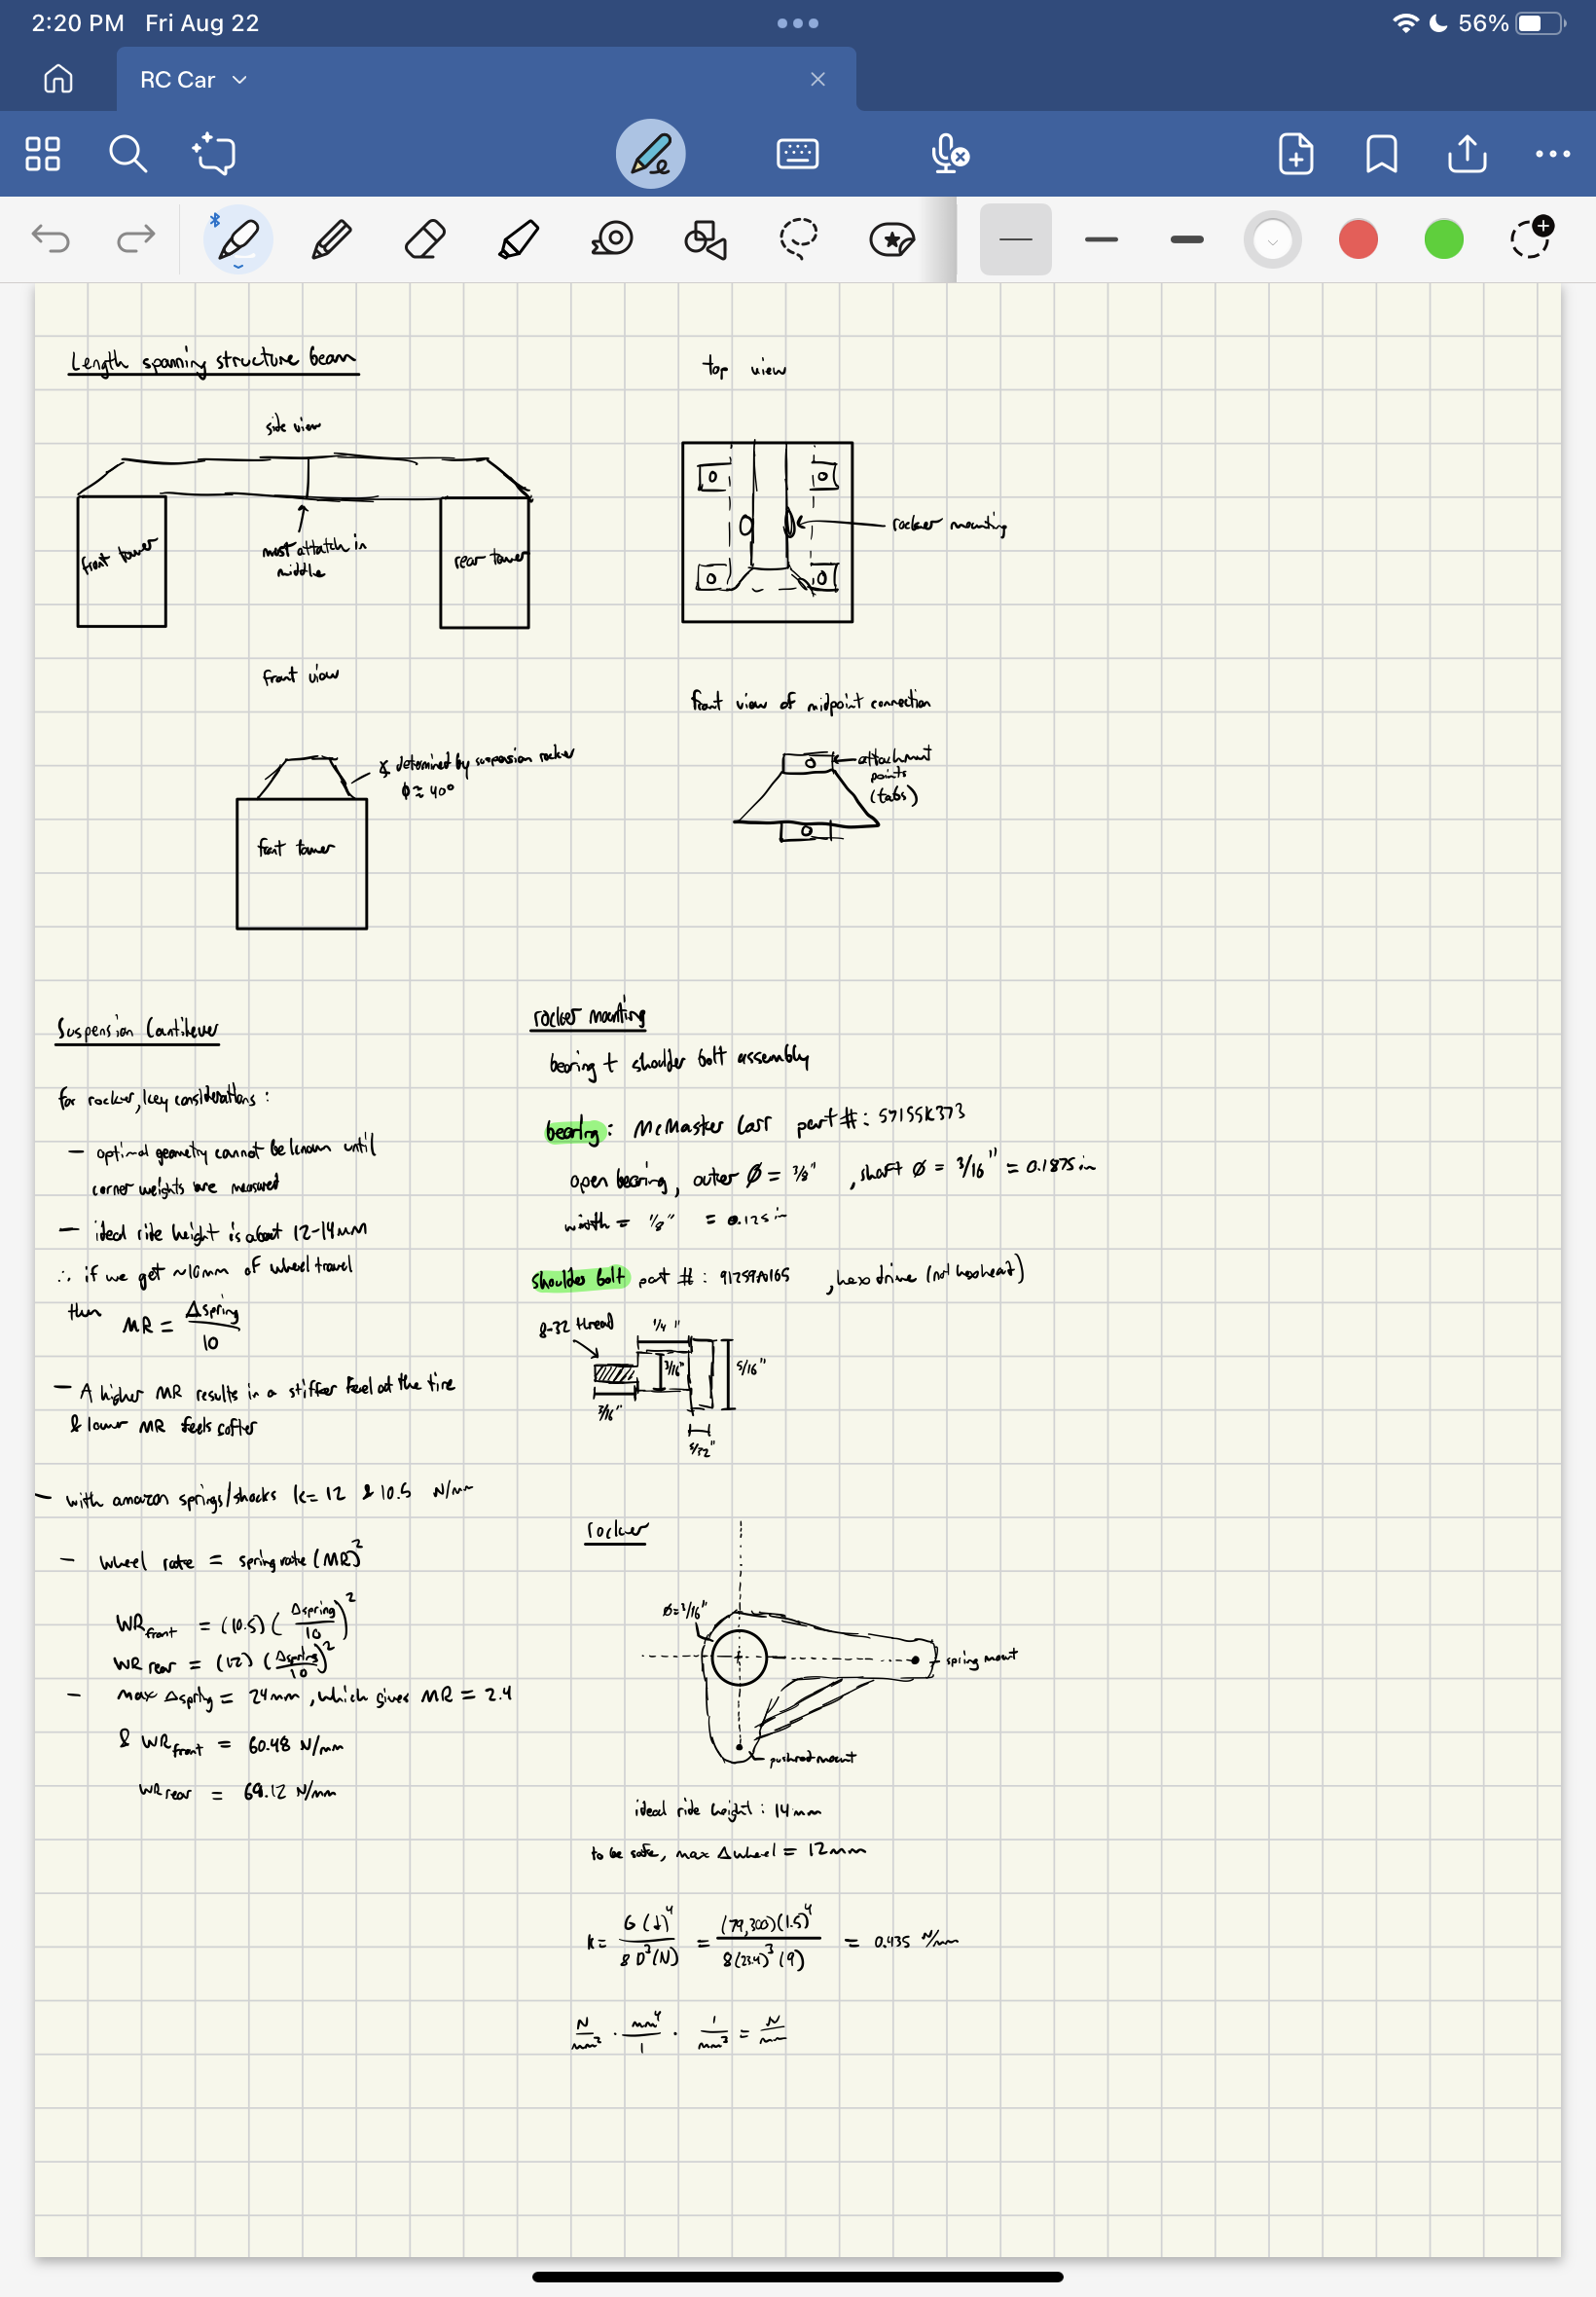 2:20 PM Fri Aug 22
56%
RC Car
Length spanning structure beam
side view
front tower
must attatch in
middle
rear tower
top view
rocker mounting
front view
∡ determined by suspension rocker
φ ≈ 40°
front tower
front view of midpoint connection
attachment
points
(tabs)
Suspension Cantilever
for rocker, key considerations:
— optimal geometry cannot be known until
corner weights are measured
— ideal ride height is about 12-14mm
∴ if we get ~10mm of wheel travel
then MR = Δspring / 10
— A higher MR results in a stiffer feel at the tire
& lower MR feels softer
— with amazon springs/shocks k= 12 & 10.5 N/mm
— wheel rate = spring rate (MR)²
WR front = (10.5) (Δspring / 10)²
WR rear = (12) (Δspring / 10)²
— max Δspring = 24mm, which gives MR = 2.4
& WR front = 60.48 N/mm
WR rear = 69.12 N/mm
rocker mounting
bearing + shoulder bolt assembly
bearing: McMaster Carr part #: 57155K373
open bearing, outer Ø = 3/8", shaft Ø = 3/16" = 0.1875 in
width = 1/8" = 0.125 in
shoulder bolt part #: 91259A0165, hex drive (not hex head)
8-32 thread
1/4"
3/16"
5/16"
3/16"
5/32"
rocker
Ø=3/16"
spring mount
pushrod mount
ideal ride height: 14mm
to be safe, max Δwheel = 12mm
k = G(d)⁴ / 8D³(N) = (79,300)(1.5)⁴ / 8(23.4)³(9) = 0.435 N/mm
N/mm² · mm⁴/1 · 1/mm³ = N/mm